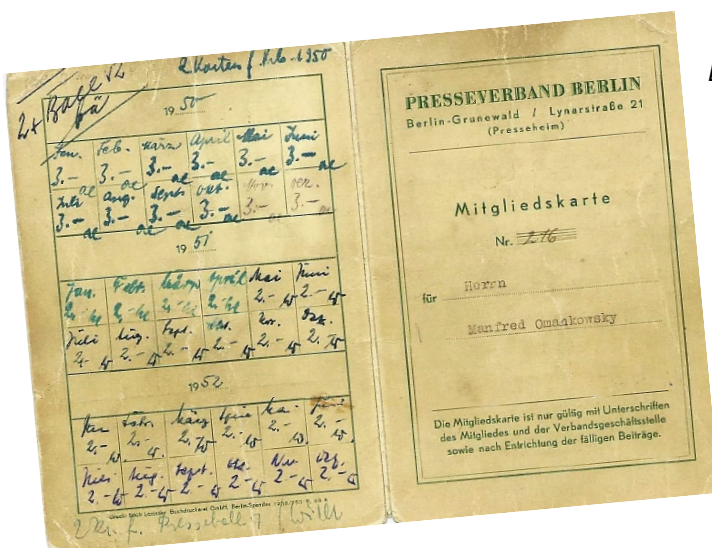 2 Karten f. 1950
1950
Jan. Feb. März April Mai Juni
3.– 3.– 3.– 3.– 3.– 3.–
Juli Aug. Sept. Okt. Nov. Dez.
3.– 3.– 3.– 3.– 3.– 3.–
1951
Jan. Febr. März April Mai Juni
2.– 2.– 2.– 2.– 2.– 2.–
Juli Aug. Sept. Okt. Nov. Dez.
2.– 2.– 2.– 2.– 2.– 2.–
1952
Jan Febr. März Mai Juni
2.– 2.– 2.– 2.– 2.– 2.–
Aug. Sept. Okt. Nov. Dez.
2.– 2.– 2.– 2.– 2.– 2.–
Buchdruckerei GmbH, Berlin-Spandau
Presseball
PRESSEVERBAND BERLIN
Berlin-Grunewald / Lynarstraße 21
(Presseheim)
Mitgliedskarte
Nr. 216
für Herrn
Manfred Omankowsky
Die Mitgliedskarte ist nur gültig mit Unterschriften
des Mitgliedes und der Verbandsgeschäftsstelle
sowie nach Entrichtung der fälligen Beiträge.